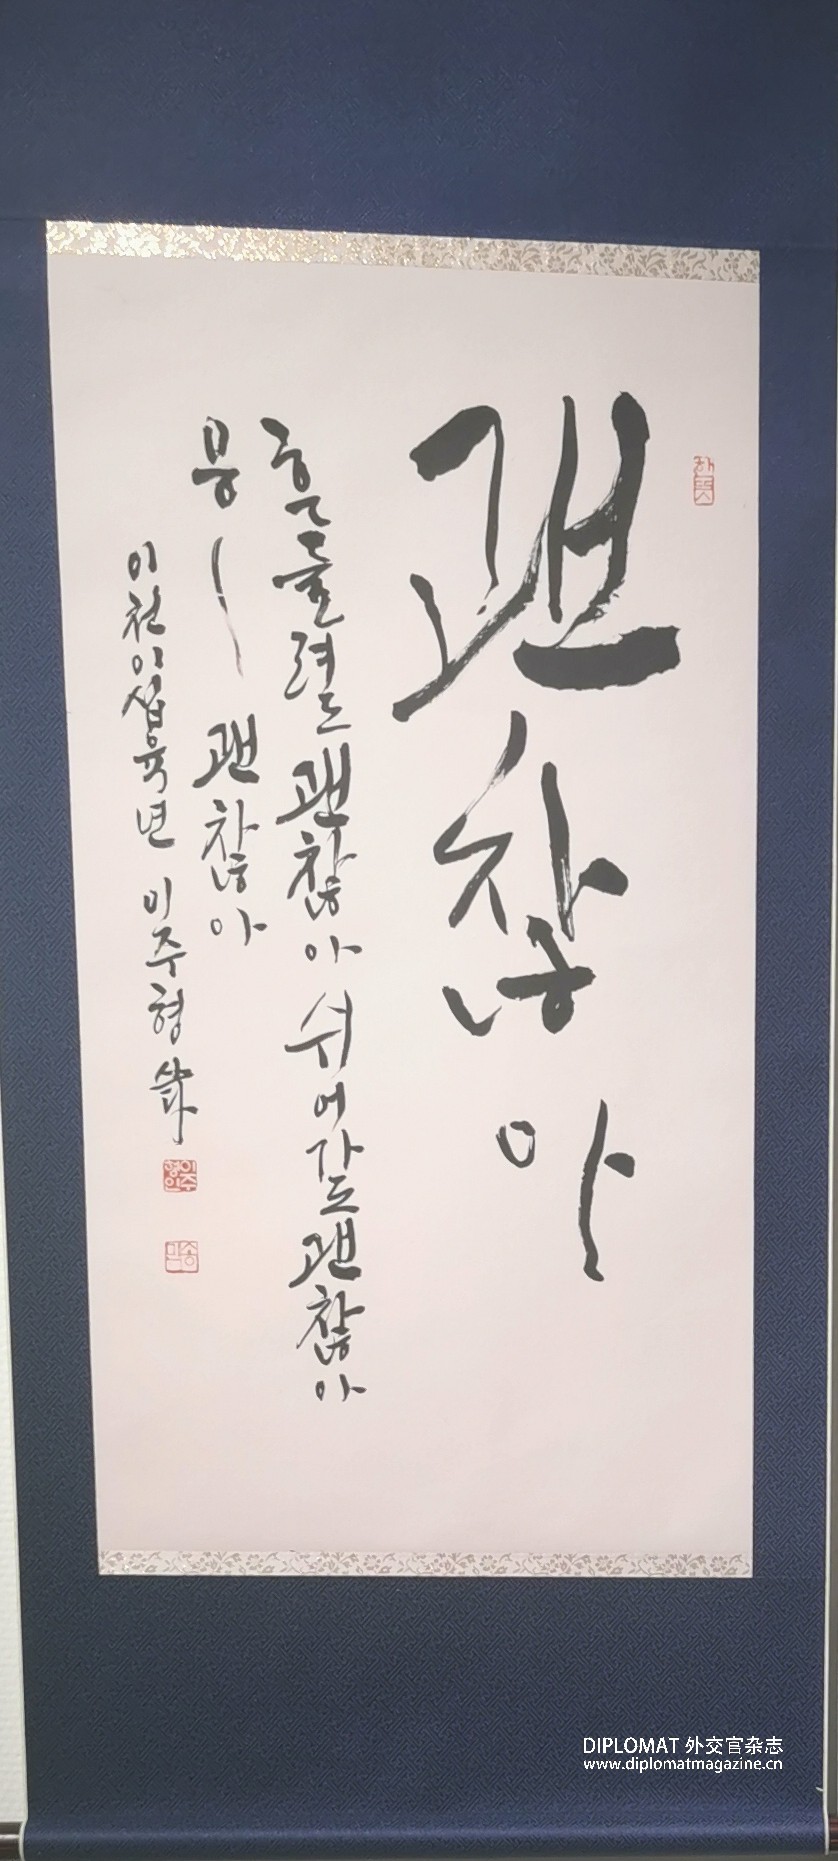 괜찮아
흔들려도 괜찮아 쉬어가도 괜찮아
괜찮아
이천이십육년 이주형
이주형인
DIPLOMAT 外交官杂志
www.diplomatmagazine.cn